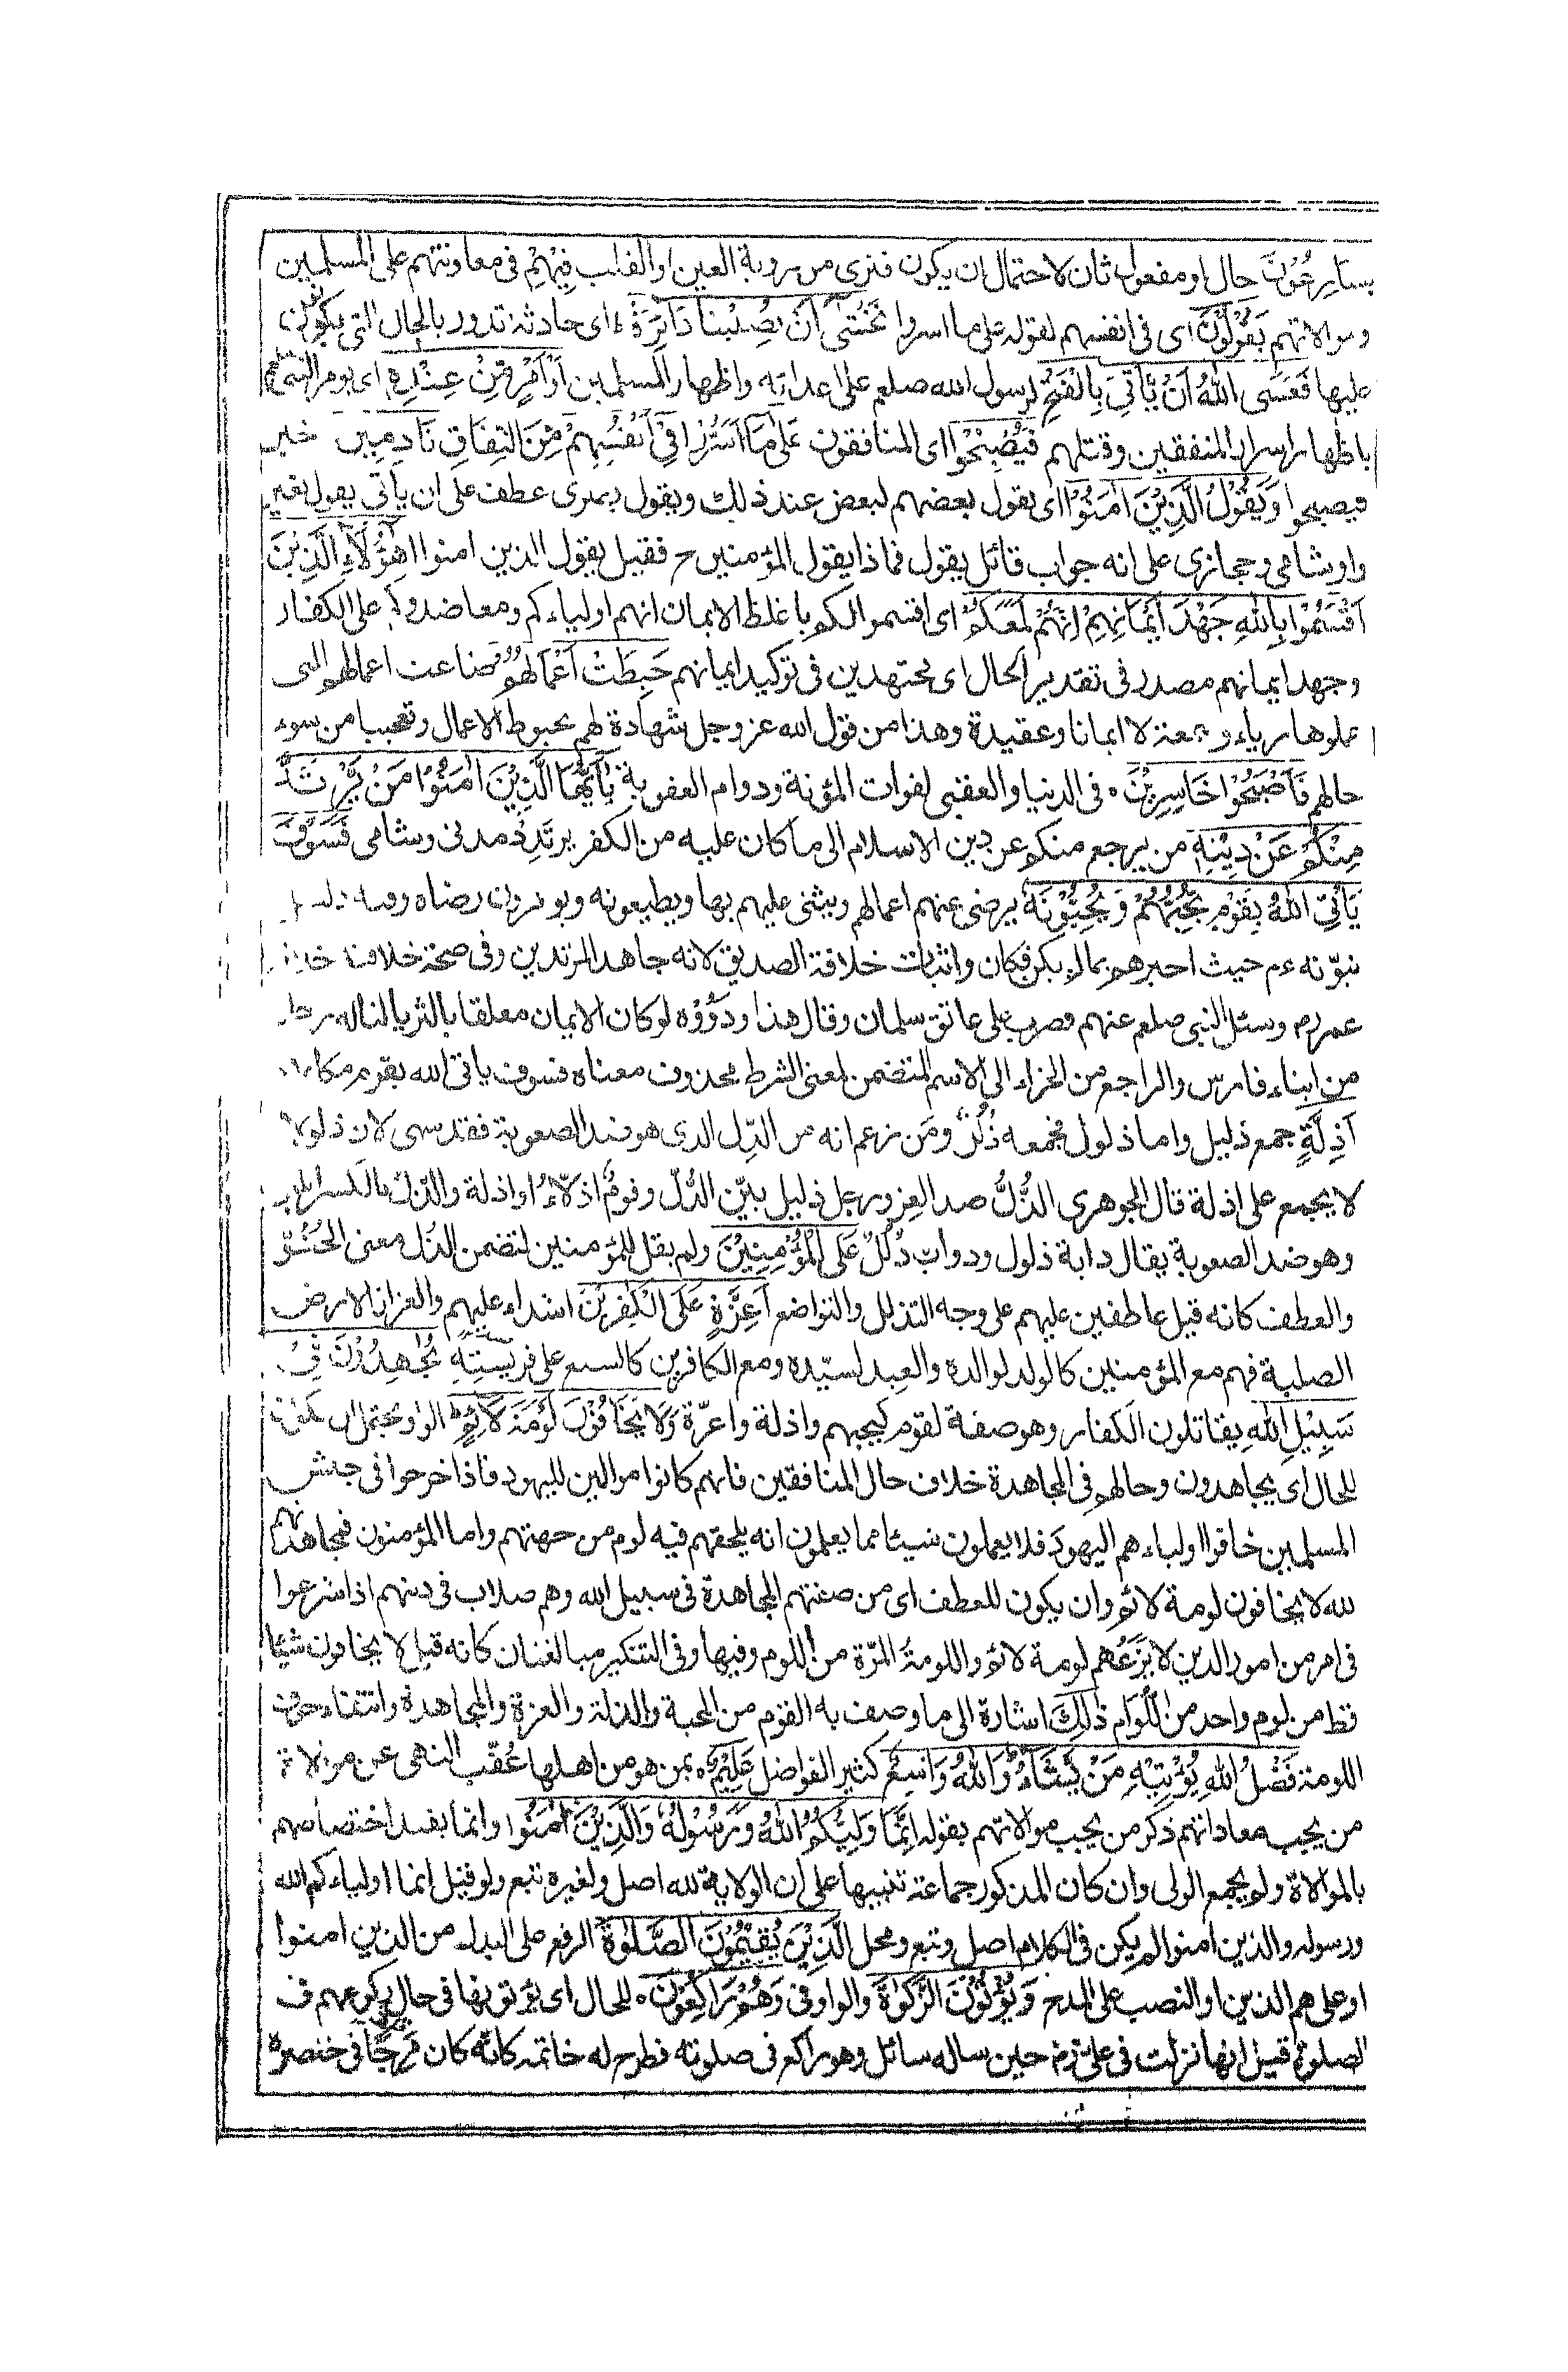 يسَارِعُوْنَ حال او مفعول ثان لاحتمال ان يكون فترى من رؤية العين او القلب فِيْهِمْ فى معاونتهم على المسلمين
وموالاتهم يَقُوْلُوْنَ اى فى انفسهم لقوله على ما اسروا نَخْشٰى اَنْ تُصِيْبَنَا دَآئِرَةٌ ؕ اى حادثة تدور بالحال التى يكونون
عليها فَعَسَى اللّٰهُ اَنْ يَّاْتِىَ بِالْفَتْحِ لرسول الله صلعم على اعدائه واظهار المسلمين اَوْ اَمْرٍ مِّنْ عِنْدِهٖ اى يومر النبى عم
باظهار اسرار المنفقين وقتلهم فَيُصْبِحُوْا اى المنافقون عَلٰى مَا اَسَرُّوْا فِىْ اَنْفُسِهِمْ مِّنَ النِّفَاقِ نَادِمِيْنَ خبر
فيصبحوا وَيَقُوْلُ الَّذِيْنَ اٰمَنُوْا اى يقول بعضهم لبعض عند ذلك ويقول بصرى عطف على ان يأتى يقول بغير
واو شامى وحجازى على انه جواب قائل يقول فماذا يقول المؤمنين ح فقيل يقول الذين امنوا اَهٰؤُلَآءِ الَّذِيْنَ
اَقْسَمُوْا بِاللّٰهِ جَهْدَ اَيْمَانِهِمْ اِنَّهُمْ لَمَعَكُمْ اى اقسموا لكم باغلظ الايمان انهم اولياءكم ومعاضدوكم على الكفار
وجهد ايمانهم مصدر فى تقدير الحال اى مجتهدين فى توكيد ايمانهم حَبِطَتْ اَعْمَالُهُمْ ضاعت اعمالهم التى
عملوها رياء وسمعة لا ايمانا وعقيدة وهذا من قول الله عز وجل شهادة لهم بحبوط الاعمال وتعجيبا من سوء
حالهم فَاَصْبَحُوْا خَاسِرِيْنَ ه فى الدنيا والعقبى لفوات المؤنة ودوام العقوبة يٰٓاَيُّهَا الَّذِيْنَ اٰمَنُوْا مَنْ يَّرْتَدَّ
مِنْكُمْ عَنْ دِيْنِهٖ من يرجع منكم عن دين الاسلام الى ما كان عليه من الكفر يرتدِدْ مدنى وشامى فَسَوْفَ
يَاْتِى اللّٰهُ بِقَوْمٍ يُّحِبُّهُمْ وَيُحِبُّوْنَهٗ يرضى عنهم اعمالهم ويثنى عليهم بها ويطيعونه ويؤثرون رضاه وفيه دليل
نبوّته عم حيث اخبرهم بما لم يكن فكان واثبات خلافة الصديق لانه جاهد المرتدين وفى صحة خلافته خلافة
عمر رم وسئل النبى صلعم عنهم فضرب على عاتق سلمان وقال هذا وذَوُوْه لو كان الايمان معلقا بالثريا لناله رجال
من ابناء فارس والراجع من الجزاء الى الاسم المتضمن لمعنى الشرط محذوف معناه فسوف ياتى الله بقوم مكانهم
اَذِلَّةٍ جمع ذليل واما ذلول فجمعه ذُلُلٌ ومن زعم انه من الذِّل الذى هو ضد الصعوبة فقد سهى لان ذلولا
لا يجمع على اذلة قال الجوهرى الذُّلُّ ضد العز ورجل ذليل بيّن الذُّل وقومٌ اذلّاءُ واذلة والذِّل بالكسر اللين
وهو ضد الصعوبة يقال دابة ذلول ودوابّ ذُلُلٌ عَلَى الْمُؤْمِنِيْنَ ولم يقل للمؤمنين لتضمن الذُل معنى الحُنُوّ
والعطف كانه قيل عاطفين عليهم على وجه التذلل والتواضع اَعِزَّةٍ عَلَى الْكٰفِرِيْنَ اشداء عليهم والعزاز الارض
الصلبة فهم مع المؤمنين كالولد لوالده والعبد لسيّده ومع الكافرين كالسبع على فريسَتِهٖ يُجَاهِدُوْنَ فِىْ
سَبِيْلِ اللّٰهِ يقاتلون الكفار وهو صفة لقوم كيحبهم واذلة واعزّة وَلَا يَخَافُوْنَ لَوْمَةَ لَآئِمٍ ؕ الواو يحتمل ان تكون
للحال اى يجاهدون وحالهم فى المجاهدة خلاف حال المنافقين فانهم كانوا موالين لليهود فاذا خرجوا فى جيش
المسلمين خافوا اولياءهم اليهود فلا يعملون شيئا مما يعلمون انه يلحقهم فيه لوم من جهتهم واما المؤمنون فمجاهدتهم
لله لا يخافون لومة لائم وان يكون للعطف اى من صفتهم المجاهدة فى سبيل الله وهم صلاب فى دينهم اذا شرعوا
فى امر من امور الدين لا يَزَعُهم لومة لائم واللومة المرّة من اللوم وفيها وفى التنكير مبالغتان كانه قيل لا يخافون شيئا
قط من لوم واحد من اللُّوَّام ذٰلِكَ اشارة الى ما وصف به القوم من المحبة والذلة والعزة والمجاهدة وانتفاء خوف
اللومة فَضْلُ اللّٰهِ يُؤْتِيْهِ مَنْ يَّشَآءُ ؕ وَاللّٰهُ وَاسِعٌ كثير الفواضل عَلِيْمٌ ه بمن هو من اهلها عُقّب النهى عن موالاة
من يجب معاداتهم ذكر من يجب موالاتهم بقوله اِنَّمَا وَلِيُّكُمُ اللّٰهُ وَرَسُوْلُهٗ وَالَّذِيْنَ اٰمَنُوا وانما يفيد اختصاصهم
بالموالاة ولم يجمع الولى وان كان المذكور جماعة تنبيها على ان الولاية لله اصل ولغيره تبع ولو قيل انما اولياءكم الله
ورسوله والذين امنوا لم يكن فى الكلام اصل وتبع ومحل الَّذِيْنَ يُقِيْمُوْنَ الصَّلٰوةَ الرفع على البدل من الذين امنوا
او على هم الذين او النصب على المدح وَيُؤْتُوْنَ الزَّكٰوةَ والواو فى وَهُمْ رَاكِعُوْنَ ه للحال اى يؤتونها فى حال ركوعهم ف
الصلوة قيل انها نزلت فى على رم حين ساله سائل وهو راكع فى صلوته فطرح له خاتمه كانّه كان مَرِجًا فى خنصره